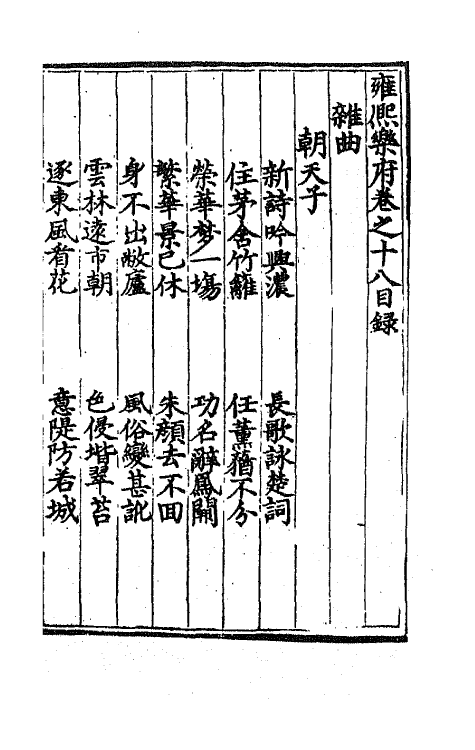 雍熈樂府卷之十八目錄
雜曲
朝天子
新詩吟興濃 長歌詠楚詞
住茅舍竹籬 任薰蕕不分
榮華梦一塲 功名辭鳳闕
繁華景已休 朱顔去不囬
身不出敝廬 風俗變甚訛
雲林遠市朝 色侵堦翠苔
逐東風看花 意隄防若城